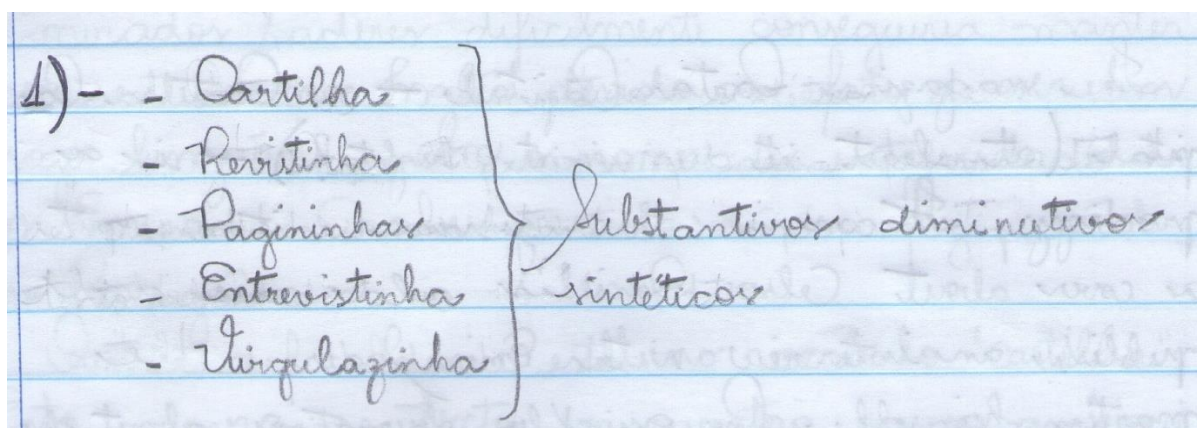 1) - - Cartilha
- Revistinha
- Pagininhas
- Entrevistinha
- Virgulazinha
Substantivos diminutivos
sintéticos